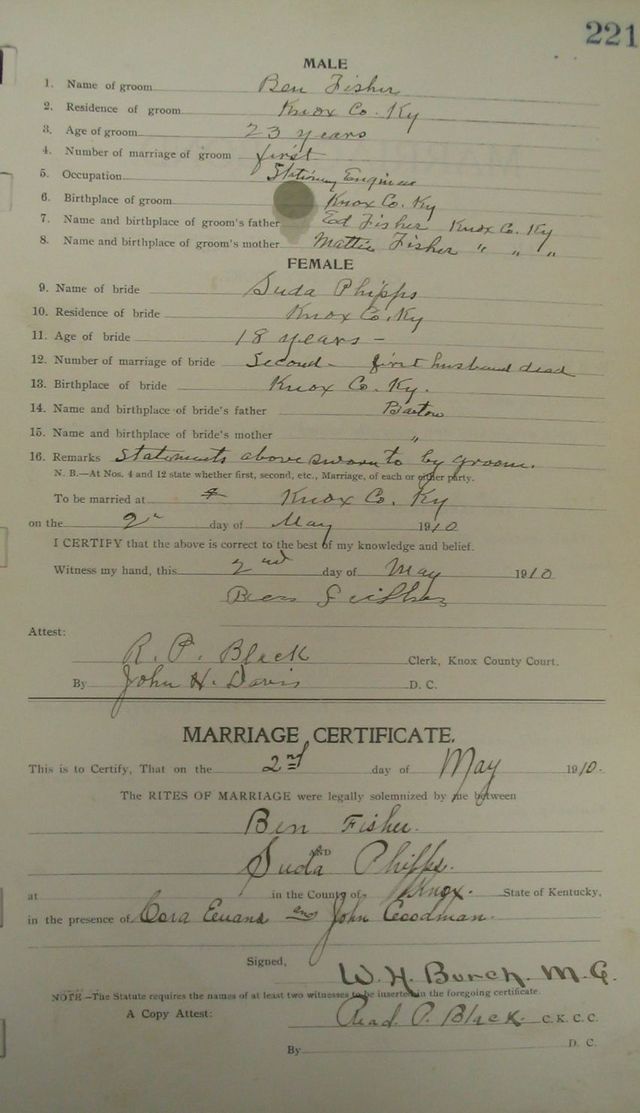 221
MALE
1. Name of groom Ben Fisher
2. Residence of groom Knox Co. Ky
3. Age of groom 23 years
4. Number of marriage of groom first
5. Occupation Stationary Engineer
6. Birthplace of groom Knox Co. Ky
7. Name and birthplace of groom's father Ed Fisher Knox Co. Ky
8. Name and birthplace of groom's mother Mattie Fisher " " "
FEMALE
9. Name of bride Suda Phipps
10. Residence of bride Knox Co. Ky
11. Age of bride 18 years -
12. Number of marriage of bride Second - first husband dead
13. Birthplace of bride Knox Co. Ky.
14. Name and birthplace of bride's father
15. Name and birthplace of bride's mother "
16. Remarks Statements above sworn to by groom.
N. B.—At Nos. 4 and 12 state whether first, second, etc., Marriage, of each or either party.
To be married at Knox Co. Ky
on the 2 day of May 1910
I CERTIFY that the above is correct to the best of my knowledge and belief.
Witness my hand, this 2nd day of May 1910
Ben
Attest:
R. P. Black Clerk, Knox County Court.
By John H. Davis D. C.
MARRIAGE CERTIFICATE.
This is to Certify, That on the 2nd day of May 1910.
The RITES OF MARRIAGE were legally solemnized by me between
Ben Fisher.
AND
Suda Phipps.
at in the County of Knox. State of Kentucky,
in the presence of Cora Evans and John Goodman.
Signed,
W. H. Burch. M. G.
NOTE—The Statute requires the names of at least two witnesses to be inserted in the foregoing certificate.
A Copy Attest: Read. P. Black C. K. C. C.
By D. C.